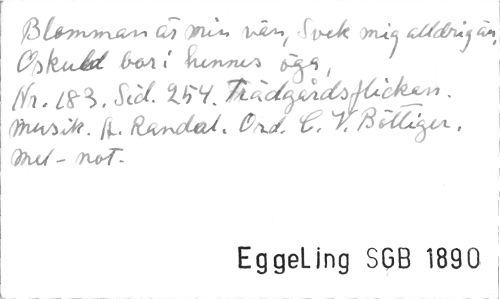 Blomman är min vän, Svek mig alldrig än,
Oskuld bor i hennes öga,
Nr. 183. Sid. 254. Trädgårdsflickan.
Musik. A. Randel. Ord. C. V. Böttiger.
mel-not.
EggeLing SGB 1890